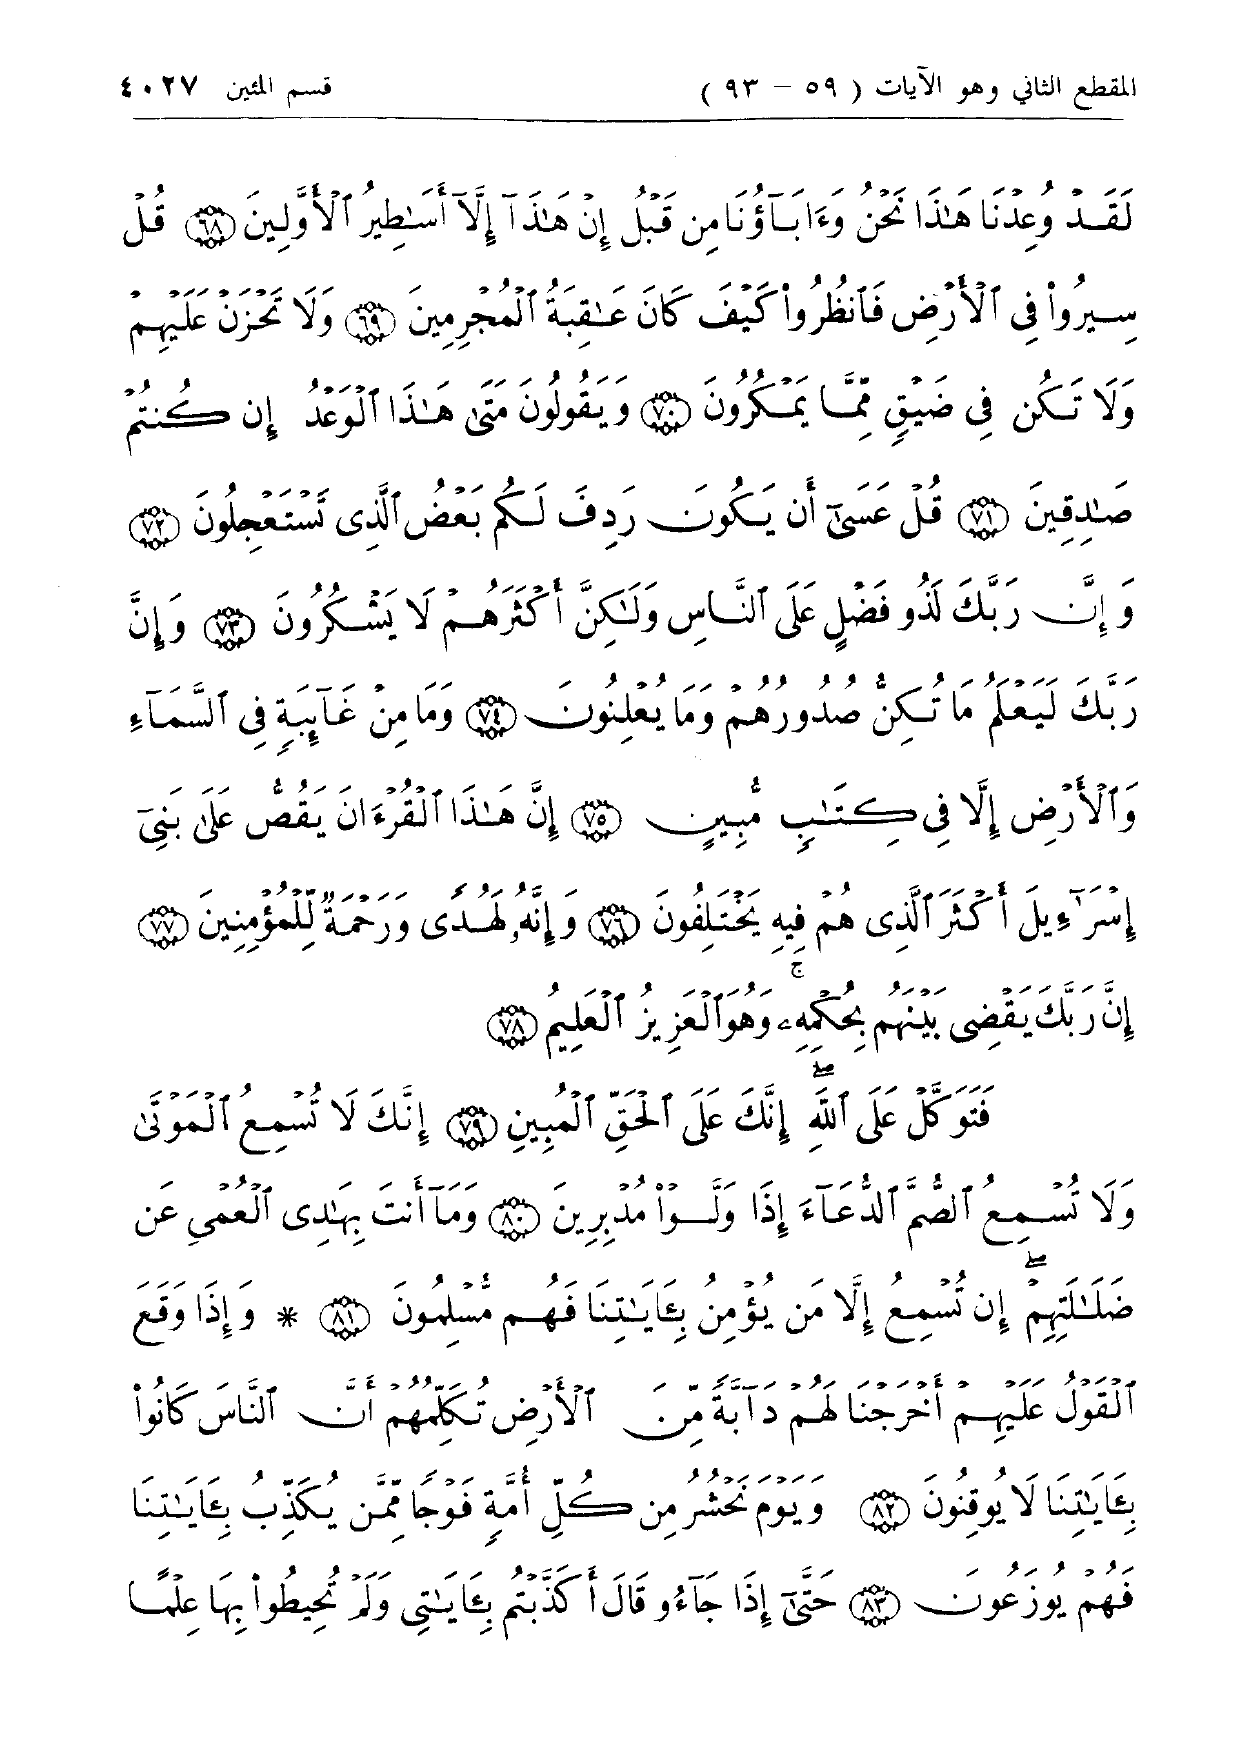 المقطع الثاني وهو الآيات ( ٥٩ – ٩٣ ) قسم المئين ٤٠٢٧
لَقَدْ وُعِدْنَا هَٰذَا نَحْنُ وَءَابَآؤُنَا مِن قَبْلُ إِنْ هَٰذَآ إِلَّآ أَسَٰطِيرُ ٱلْأَوَّلِينَ ﴿٦٨﴾ قُلْ
سِيرُوا۟ فِى ٱلْأَرْضِ فَٱنظُرُوا۟ كَيْفَ كَانَ عَٰقِبَةُ ٱلْمُجْرِمِينَ ﴿٦٩﴾ وَلَا تَحْزَنْ عَلَيْهِمْ
وَلَا تَكُن فِى ضَيْقٍ مِّمَّا يَمْكُرُونَ ﴿٧٠﴾ وَيَقُولُونَ مَتَىٰ هَٰذَا ٱلْوَعْدُ إِن كُنتُمْ
صَٰدِقِينَ ﴿٧١﴾ قُلْ عَسَىٰٓ أَن يَكُونَ رَدِفَ لَكُم بَعْضُ ٱلَّذِى تَسْتَعْجِلُونَ ﴿٧٢﴾
وَإِنَّ رَبَّكَ لَذُو فَضْلٍ عَلَى ٱلنَّاسِ وَلَٰكِنَّ أَكْثَرَهُمْ لَا يَشْكُرُونَ ﴿٧٣﴾ وَإِنَّ
رَبَّكَ لَيَعْلَمُ مَا تُكِنُّ صُدُورُهُمْ وَمَا يُعْلِنُونَ ﴿٧٤﴾ وَمَا مِنْ غَآئِبَةٍ فِى ٱلسَّمَآءِ
وَٱلْأَرْضِ إِلَّا فِى كِتَٰبٍ مُّبِينٍ ﴿٧٥﴾ إِنَّ هَٰذَا ٱلْقُرْءَانَ يَقُصُّ عَلَىٰ بَنِىٓ
إِسْرَٰٓءِيلَ أَكْثَرَ ٱلَّذِى هُمْ فِيهِ يَخْتَلِفُونَ ﴿٧٦﴾ وَإِنَّهُۥ لَهُدًى وَرَحْمَةٌ لِّلْمُؤْمِنِينَ ﴿٧٧﴾
إِنَّ رَبَّكَ يَقْضِى بَيْنَهُم بِحُكْمِهِۦ ۚ وَهُوَ ٱلْعَزِيزُ ٱلْعَلِيمُ ﴿٧٨﴾
فَتَوَكَّلْ عَلَى ٱللَّهِ ۖ إِنَّكَ عَلَى ٱلْحَقِّ ٱلْمُبِينِ ﴿٧٩﴾ إِنَّكَ لَا تُسْمِعُ ٱلْمَوْتَىٰ
وَلَا تُسْمِعُ ٱلصُّمَّ ٱلدُّعَآءَ إِذَا وَلَّوْا۟ مُدْبِرِينَ ﴿٨٠﴾ وَمَآ أَنتَ بِهَٰدِى ٱلْعُمْىِ عَن
ضَلَٰلَتِهِمْ ۖ إِن تُسْمِعُ إِلَّا مَن يُؤْمِنُ بِـَٔايَٰتِنَا فَهُم مُّسْلِمُونَ ﴿٨١﴾ * وَإِذَا وَقَعَ
ٱلْقَوْلُ عَلَيْهِمْ أَخْرَجْنَا لَهُمْ دَآبَّةً مِّنَ ٱلْأَرْضِ تُكَلِّمُهُمْ أَنَّ ٱلنَّاسَ كَانُوا۟
بِـَٔايَٰتِنَا لَا يُوقِنُونَ ﴿٨٢﴾ وَيَوْمَ نَحْشُرُ مِن كُلِّ أُمَّةٍ فَوْجًا مِّمَّن يُكَذِّبُ بِـَٔايَٰتِنَا
فَهُمْ يُوزَعُونَ ﴿٨٣﴾ حَتَّىٰٓ إِذَا جَآءُو قَالَ أَكَذَّبْتُم بِـَٔايَٰتِى وَلَمْ تُحِيطُوا۟ بِهَا عِلْمًا